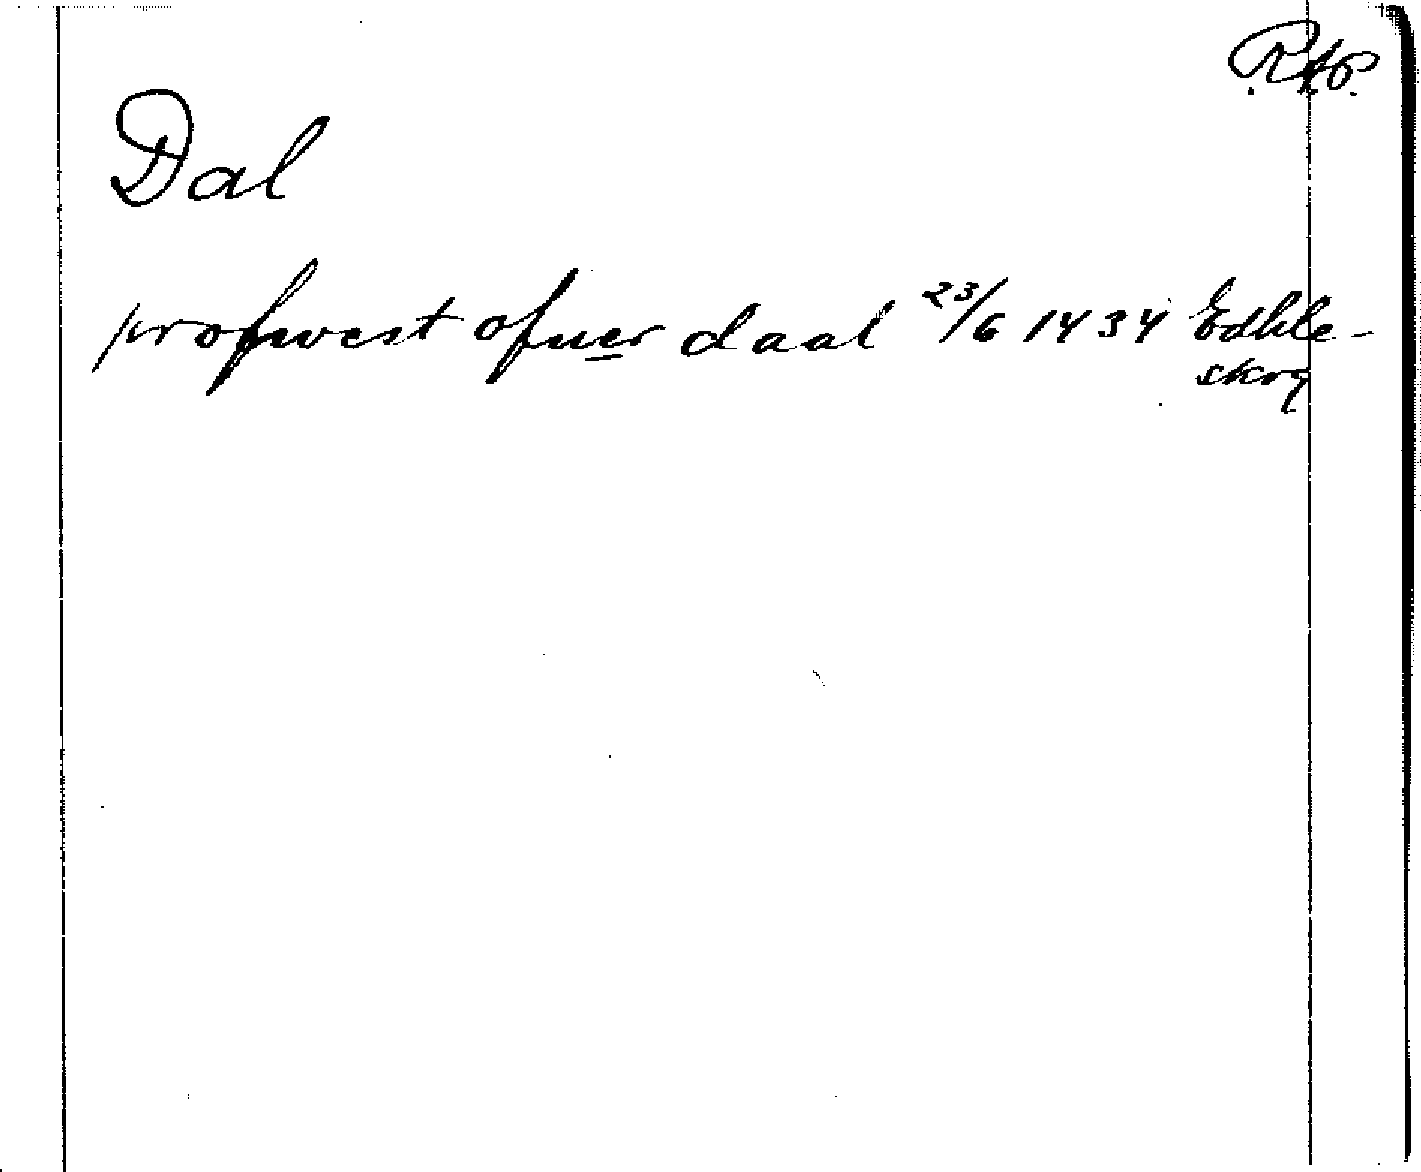 R.A.P.
Dal
profwest ofuer daal 23/6 1434 Edhle-
skog